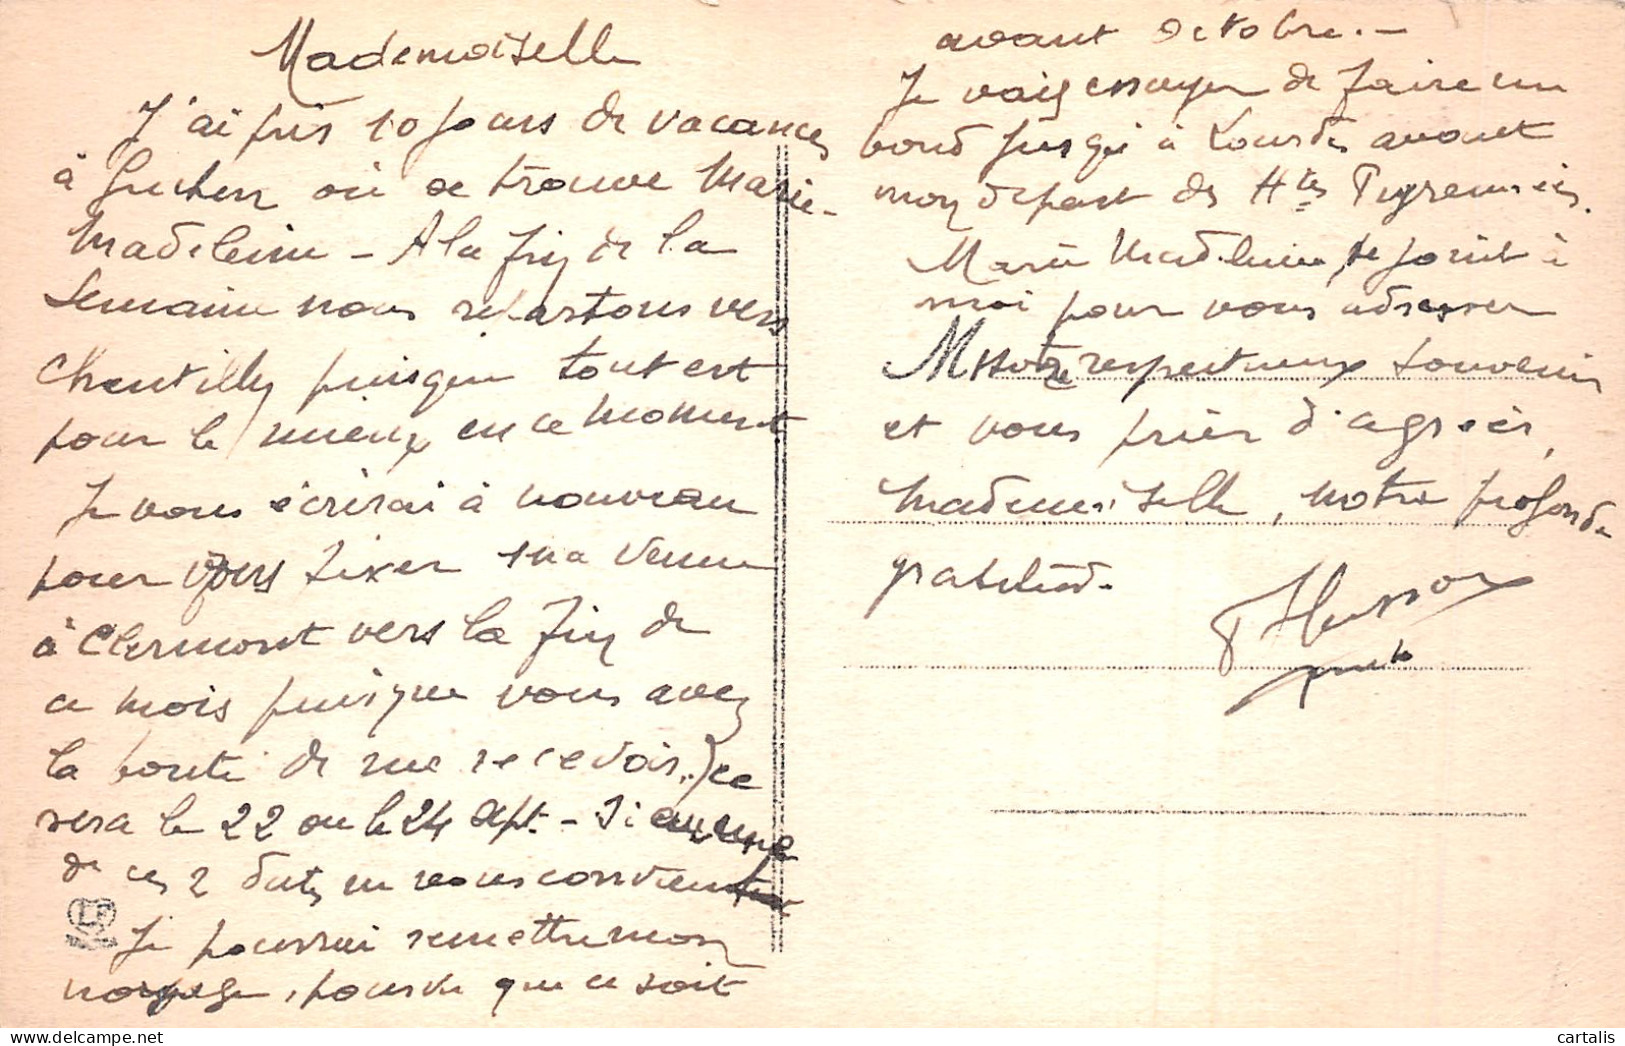 Mademoiselle
J'ai pris 10 jours de vacances
à Guchen où se trouve Marie-
Madeleine - A la fin de la
Semaine nous repartons vers
Chantilly puisque tout est
pour le mieux en ce moment
Je vous écrirai à nouveau
pour vous fixer ma venue
à Clermont vers la fin de
ce mois puisque vous avez
la bonté de me recevoir. Ce
sera le 22 ou le 24 Sept. - Si aucune
de ces 2 dates ne vous convient
Je pourrai remettre mon
voyage, pourvu que ce soit
avant Octobre. -
Je vais essayer de faire un
bond jusqu'à Lourdes avant
mon départ des Htes Pyrennées.
Marie Madeleine se joint à
moi pour vous adresser
notre respectueux souvenir
et vous prier d'agréer,
Mademoiselle, notre profonde
gratitude.
Husson
LF
cartalis